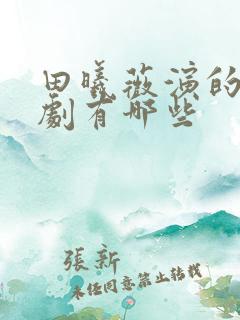 田曦薇演的
劇有哪些
張新
未经同意禁止转载